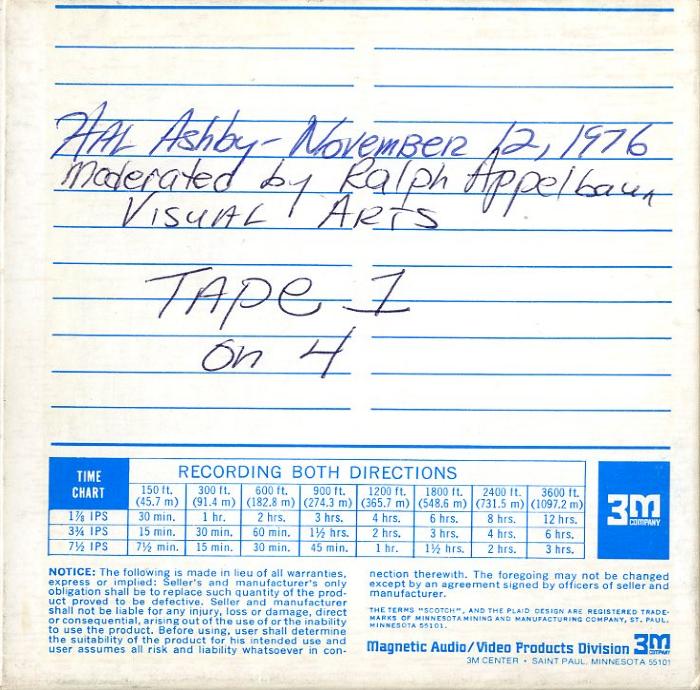 HAL Ashby - November 12, 1976
Moderated by Ralph Appelbaum
VISUAL ARTS
TAPE 1
on 4
TIME CHART
RECORDING BOTH DIRECTIONS
150 ft. (45.7 m) 300 ft. (91.4 m) 600 ft. (182.8 m) 900 ft. (274.3 m) 1200 ft. (365.7 m) 1800 ft. (548.6 m) 2400 ft. (731.5 m) 3600 ft. (1097.2 m)
1⅞ IPS 30 min. 1 hr. 2 hrs. 3 hrs. 4 hrs. 6 hrs. 8 hrs. 12 hrs.
3¾ IPS 15 min. 30 min. 60 min. 1½ hrs. 2 hrs. 3 hrs. 4 hrs. 6 hrs.
7½ IPS 7½ min. 15 min. 30 min. 45 min. 1 hr. 1½ hrs. 2 hrs. 3 hrs.
3M
COMPANY
NOTICE: The following is made in lieu of all warranties,
express or implied: Seller's and manufacturer's only
obligation shall be to replace such quantity of the prod-
uct proved to be defective. Seller and manufacturer
shall not be liable for any injury, loss or damage, direct
or consequential, arising out of the use of or the inability
to use the product. Before using, user shall determine
the suitability of the product for his intended use and
user assumes all risk and liability whatsoever in con-
nection therewith. The foregoing may not be changed
except by an agreement signed by officers of seller and
manufacturer.
THE TERMS "SCOTCH", AND THE PLAID DESIGN ARE REGISTERED TRADE-
MARKS OF MINNESOTA MINING AND MANUFACTURING COMPANY, ST. PAUL,
MINNESOTA 55101.
Magnetic Audio/Video Products Division 3M COMPANY
3M CENTER • SAINT PAUL, MINNESOTA 55101